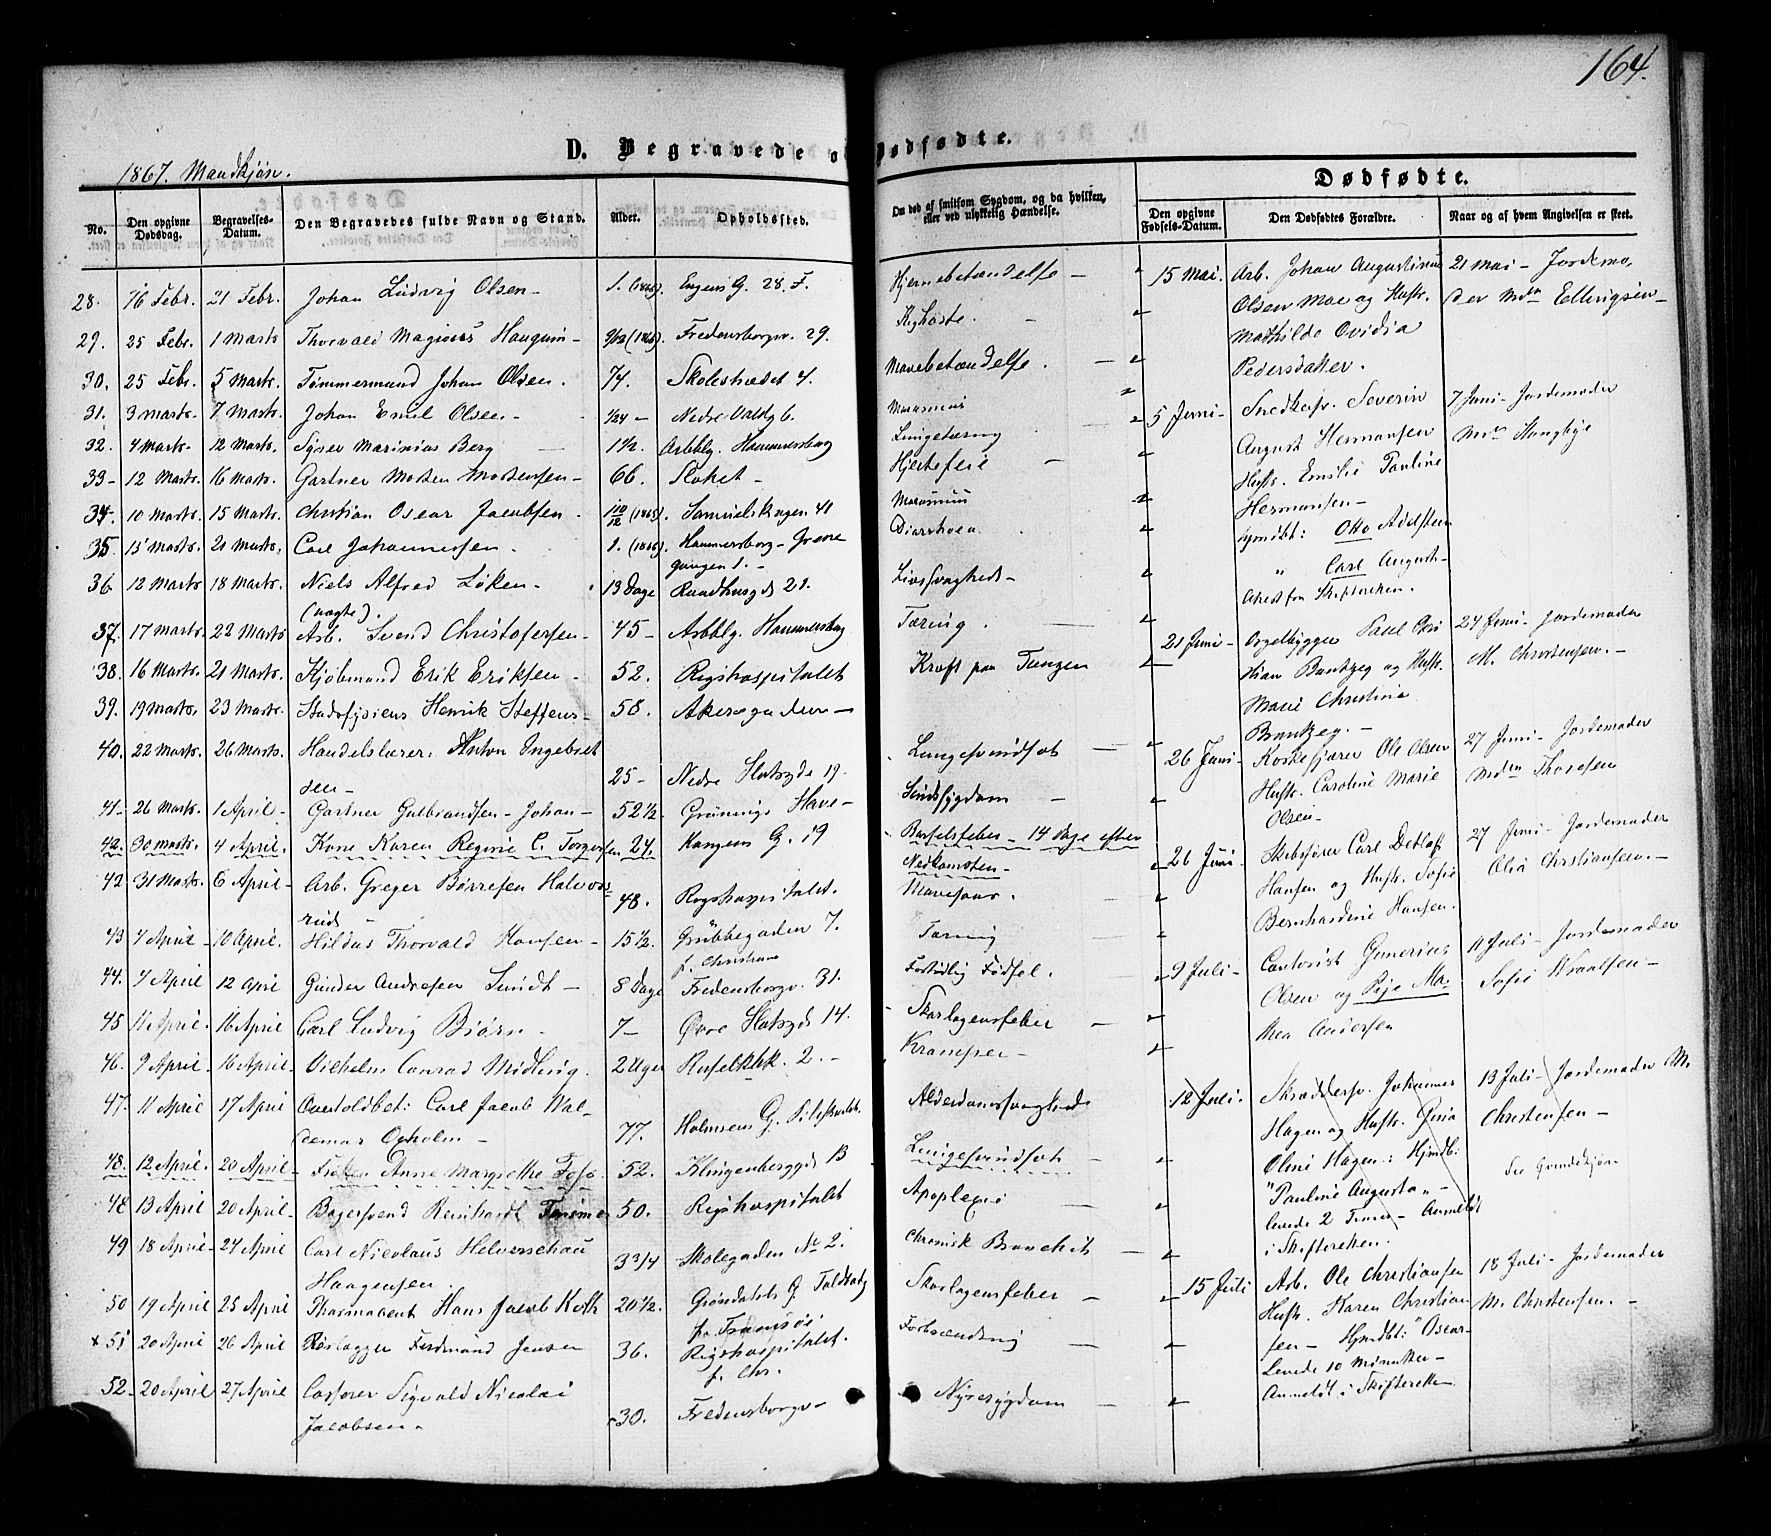 164.
D. Begravede o
Dødfødte.
1867. Mandkjøn.
No.
Den opgivne Dødsdag.
Begravelses-Datum.
Den Begravedes fulde Navn og Stand.
Alder.
Opholdssted.
Om død af smitsom Sygdom, og da hvilken, eller ved ulykkelig Hændelse.
Dødfødte.
Den opgivne Fødsels-Datum.
Den Dødfødtes Forældre.
Naar og af hvem Angivelsen er skeet.
28. 16 Febr. 21 Febr. Johan Ludvig Olsen - 1. (1866) Engens G. 28. F. Hjernebetændelse -
29. 25 Febr. 1 Marts Thorvald Magnus Haugum - 9/12 (1866). Fredensborgv. 29. Kighoste.
30. 25 Febr. 5 Marts. Tømmermand Johan Olsen. 74. Skolestrædet 4. Mavebetændelse.
31. 3 Marts. 7 Marts. Johan Emil Olsen. 1/24 - Nedre Voldg 6. Marasmus
32. 4 Marts. 12 Marts. Marinius Berg 1 1/2. Arbblg. Hammersborg Lungetæring
33 - 12 Marts. 16 Marts. Gartner Morten Mortensen - 66. Sloket - Hjertefeil
34. 10 Marts. 15 Marts. Christian Oscar Jacobsen. 1 10/12 (1865). 41 Marasmus
35. 15 Marts. 21 Marts. Carl Johannessen. 1. (1866). Hammersborg - Grønne
gangen 1. - Diarrhoea
36. 12 Marts 18 Marts. Niels Alfred Løken - 13 Dage Raadhusgd 21. Livssvaghed -
(uægte).
37. 17 Marts. 22 Marts Arb. Svend Christofersen - 45 - Arbblg. Hammersborg Tæring.
38. 16 Marts 21 Marts. Kjøbmand Erik Eriksen - 52. Rigshospitalet Kræft paa Tungen
39. 19 Marts. 23 Marts. Stadsfysicus Henrik Steffens - 58. Akersgaden -
40. 22 Marts. 26 Marts. Handelslærer. Anton Ingebret
sen - 25 - Nedre Slotsgde 19. Lungesvindsot
41 - 26 Marts. 1 April - Gartner Gulbrandsen - Johan - 52 1/2. Grønings Have - Sindssygdom -
42. 30 Marts. 4 April. Kone Karen Regine C. Torgersen 24. Kangens G. 19 Barselfeber - 14 Dage efter
Nedkomsten -
42 31 Marts. 6 April - Arb. Greger Børresen Halvors
rud 48. Rigshospitalet. Mavesaar.
43 4 April - 10 April. Hildus Thorvald Hansen - 15 1/2. Grübbegaden 7.
f. Christiania Tæring
44. 4 April 12 April Gunder Andresen Sundt - 8 Dage Fredensborgv. 31. Fortidlig Fødsel.
45 11 April. 16 April Carl Ludvig Bjørn. 7 - Øvre Slotsgd 14. Skarlagensfeber -
46. 9 April - 16 April - Vilhelm Conrad Midling. 2 Uger 2. - Kramper -
47. 11 April 17 April Overtoldbet: Carl Jacob Wal-
demar Opholm - 77. Holmsens G. Pilestrædet. Alderdomssvaghed
48. 12 April. 20 April - Frøken Anne Margrethe Foss. 52. Klingenberggd 13 Lungesvindsot -
48 13 April 20 April - Bagersvend Reinhardt 50. Rigshospitalet Apoplexie
49 18 April - 24 April Carl Nicolaus Helverschou
Haagensen. 3 3/4 Skolegaden No 2. Chronisk Bronchit
50 19 April 25 April Pharmaceut Hans Jacob Koth 20 1/2. Grøndahls G.
fr. Tromsø. Skarlagensfeber
x 51 20 April 26 April Ferdinand Jensen 36. Rigshospitalet.
f. Chr. Forbrænding
52 - 20 April 27 April Casserer Sigvald Nicolai
Jacobsen - 30. Fredensborgv - Nyresygdom
15 Mai. Arb. Johan Augustinus
Olsen Moe og Hustr.
Mathilde Ovidia
Pedersdatter.
21 Mai - Jordemo,
der Mdm Ellingsen -
5 Juni - Snedkersv. Severin
August Hermansen
Hustr. Emilie Pauline
Hermansen -
hjmdbt: Otto Adelsten
" Carl August -
Attest fra Skifteretten.
7 Juni - Jordemoder
Mdm Stangbye
21 Juni - Orgelbygger Paul Chri
stian Brantzeg og Hustr.
Marie Christine
Brantzeg. -
24 Juni - Jordemoder
M. Christensen. -
26 Juni - Ole Olsen
Hustr. Caroline Marie
Olsen -
27 Juni - Jordemoder
Mdm Thoresen
26 Juni - Skibsfører Carl Detlof
Hansen og Hustr. Sofie
Bernhardine Hansen.
27 Juni - Jordemoder
Olia Christiansen. -
9 Juli - Contorist Gunerius
Olsen og Pige Ma-
thea Andersen
11 Juli - Jordemoder
Sofie Wraalsen -
12 Juli. Skræddersv. Johannes
Hagen og Hustr. Gina
Oline Hagen: Hjmdb:
"Pauline Augusta" -
levede 2 Timer - Anmeldt
i Skifteretten.
13 Juli - Jordemoder M.
Christensen -
See Qvindekjøn
15 Juli Arb. Ole Christiansen
Hustr. Karen Christian
sen - Hjmdbt: "Oscar -
levede 10 Minutter -
Anmeldt i Skifteretten
18 Juli - Jordemoder
M. Christensen. -